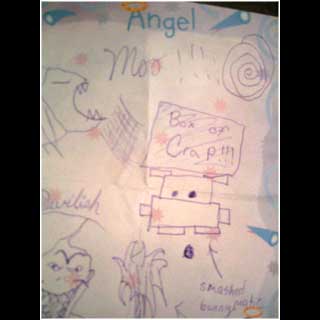 Angel
Moo !!!!
Box of
Crap!!!
Devilish
smashed
bunny